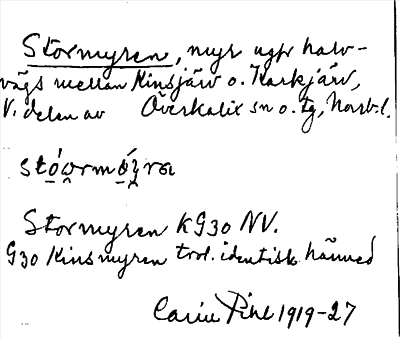 Stormyren, myr ugf halv-
vägs mellan Kinsjärv o. Karkjärv,
V. delen av Överkalix sn o. tg, Norrb. l.
Stormyren kG30 NV.
G30 Kinsmyren trol. identisk härmed
Carin Pihl 1919-27